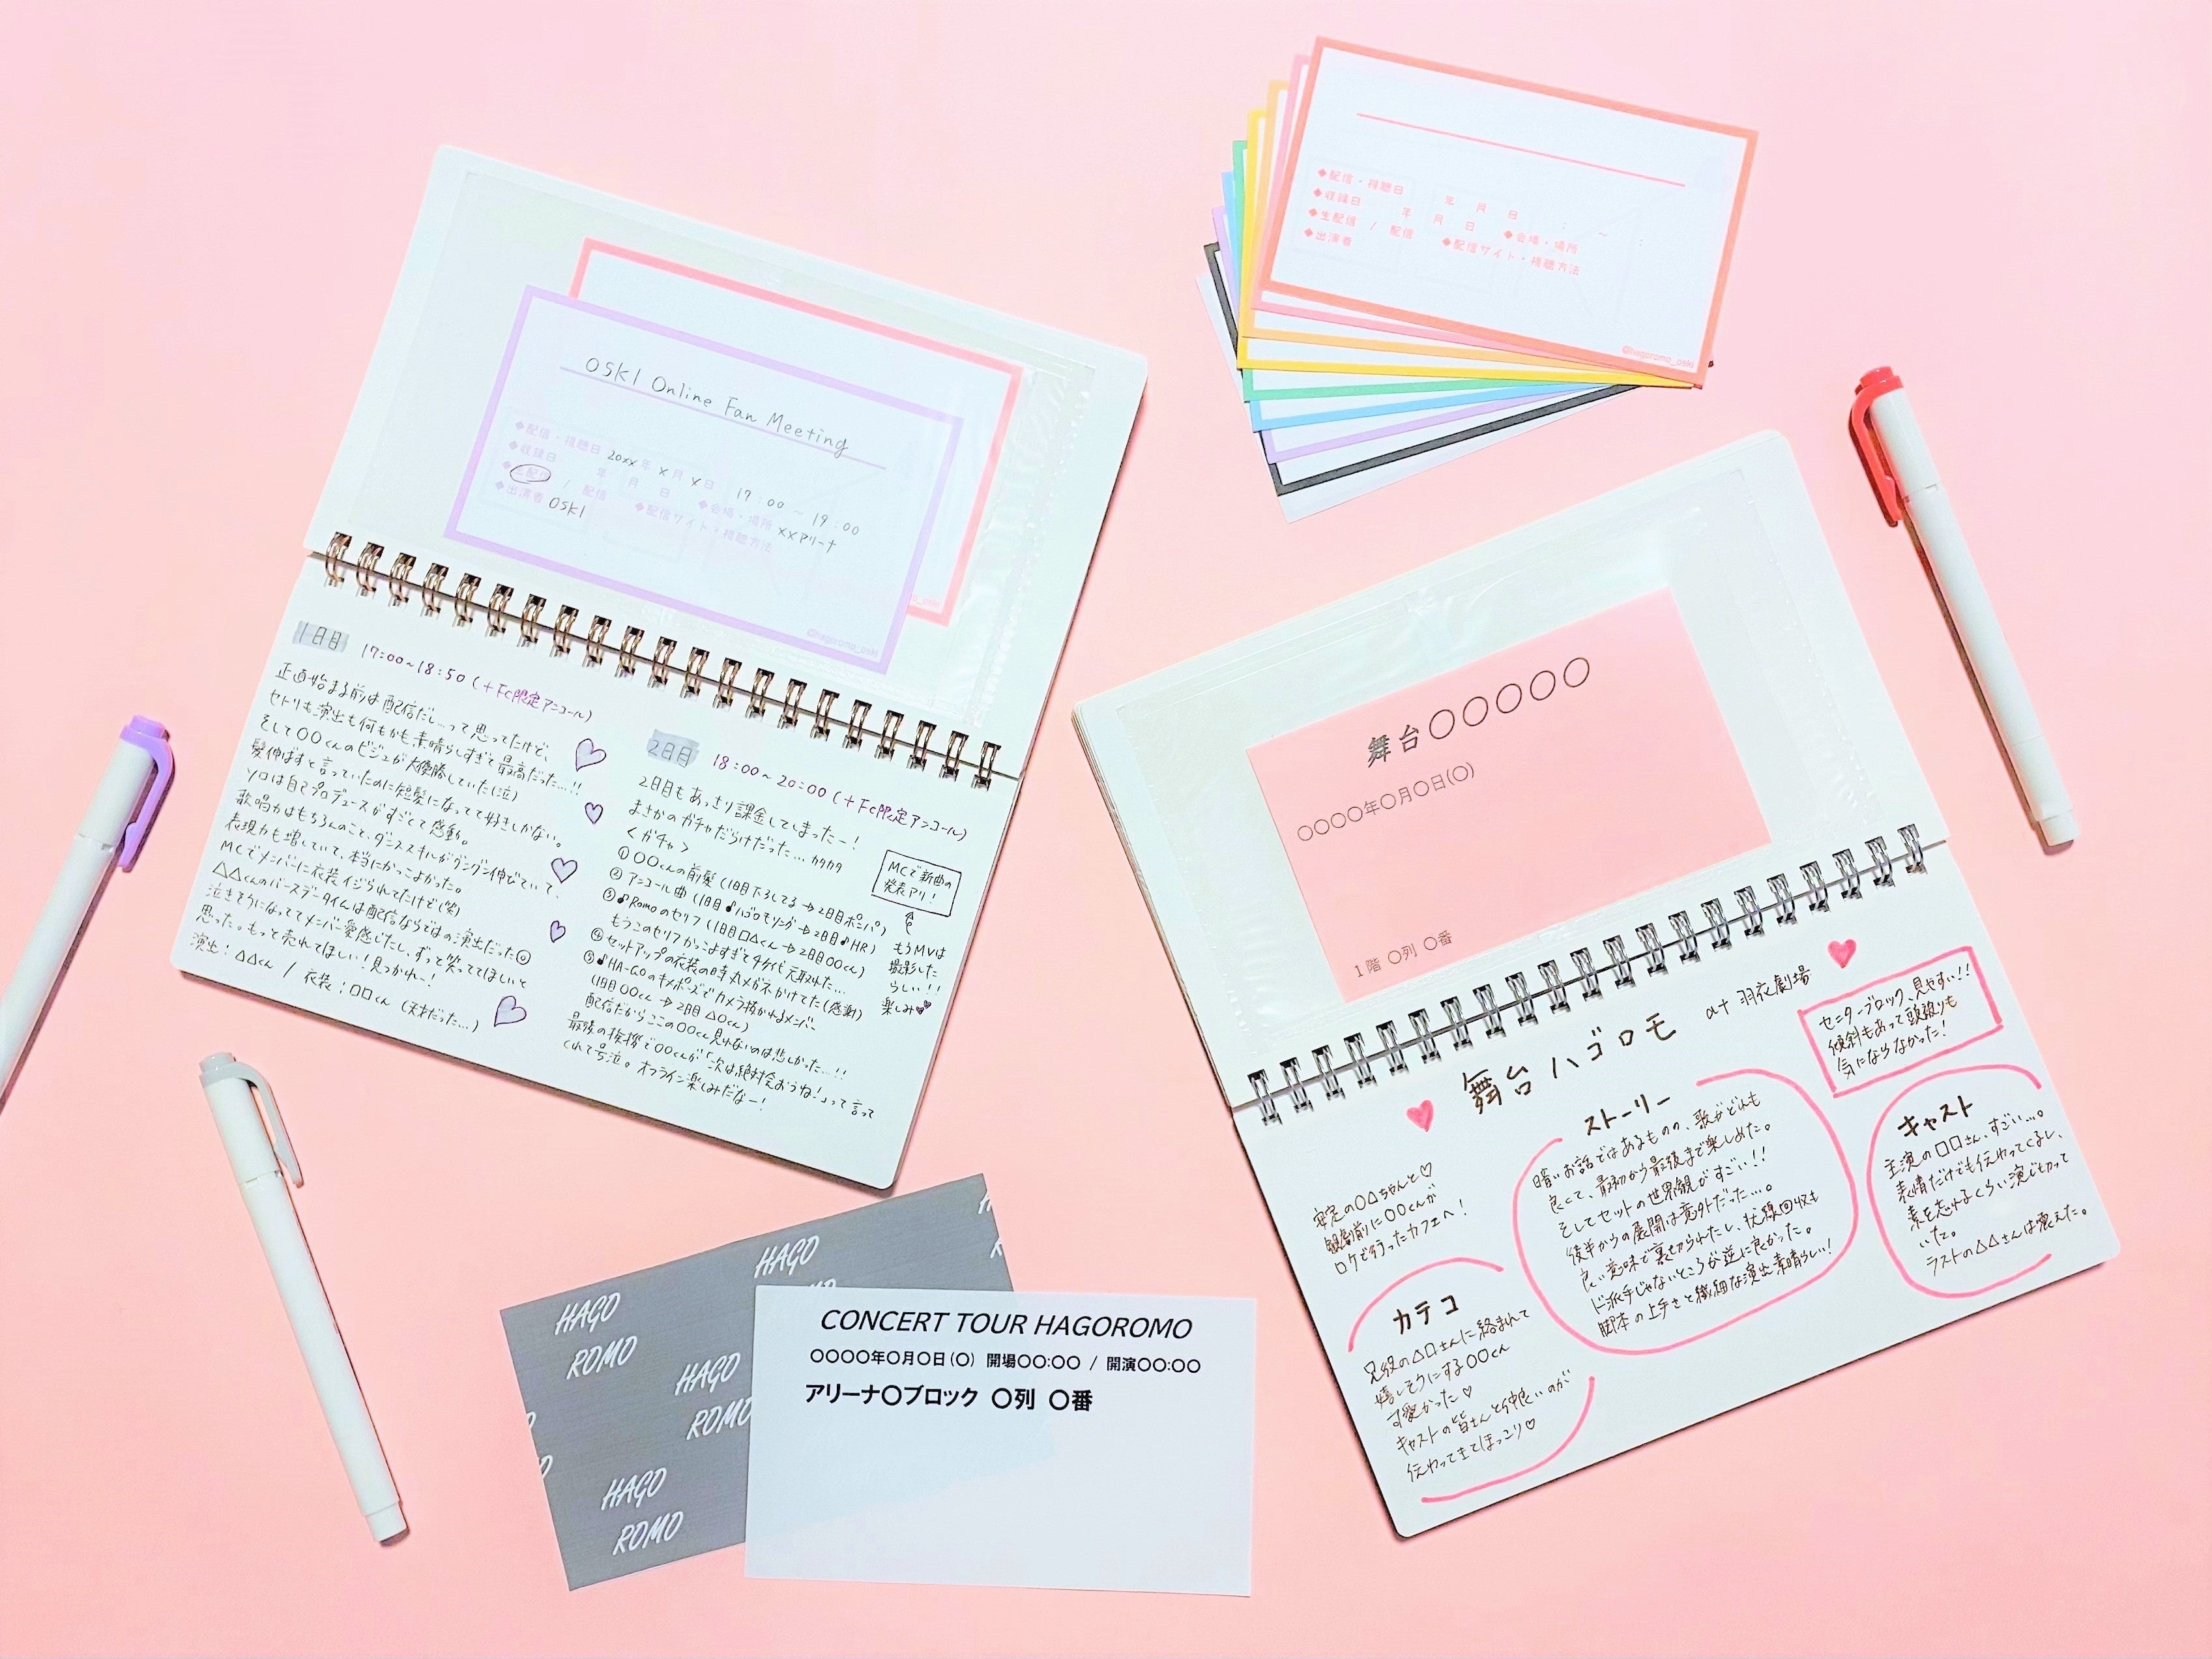 OSKI Online Fan Meeting
◆配信・視聴日 20xx年 x月 x日 17:00 ～ 19:00
◆収録日 年 月 日 ◆会場・場所 xxアリーナ
◆生配信 / 配信 ◆配信サイト・視聴方法
◆出演者 OSKI
@hagoromo_oski
1日目 17:00~18:50 (+FC限定アンコール)
正直始まる前は配信だし…って思ってたけど、
セトリも演出も何もかも素晴らしすぎて最高だった…!!
そして〇〇くんのビジュが大優勝していた(泣)
髪伸ばすと言っていたのに短髪になってて好きしかない。
ソロは自己プロデュースがすごくて感動。
歌唱力はもちろんのこと、ダンススキルがグングン伸びていて、
表現力も増していて、本当にかっこよかった。
MCでメンバーに衣装イジられてたけど(笑)
△△くんのバースデータイムは配信ならではの演出だった◎
泣きそうになっててメンバー愛感じたし、ずっと笑っててほしいと
思った。もっと売れてほしい!見つかれ~!
演出:△△くん / 衣装:□□くん (天才だった…)
2日目 18:00~20:00 (+FC限定アンコール)
2日目もあっさり課金してしまったー!
まさかのガチャだらけだった… カタカタ
<ガチャ>
①〇〇くんの前髪 (1日目下ろしてる→2日目ポンパ)
②アンコール曲 (1日目♪ハゴロモリング→2日目♪HR)
③♪Romoのセリフ (1日目□△くん→2日目〇〇くん)
もうこのセリフかっこよすぎてチケ代元取れた…
④セットアップの衣装の時丸メガネかけてた(感謝)
⑤♪HA-GOのキメポーズでカメラ抜かれるメンバー
(1日目〇〇くん→2日目△〇くん)
配信だからここの〇〇くん見れないのは悲しかった…!!
最後の挨拶で〇〇くんが「次は絶対会おうね!」って言って
くれて号泣。オフライン楽しみだなー!
MCで新曲の
発表アリ!
もうMVは
撮影した
らしい!!
楽しみ
◆配信・視聴日 年 月 日 : ～ :
◆収録日 年 月 日 ◆会場・場所
◆生配信 / 配信 ◆配信サイト・視聴方法
◆出演者
@hagoromo_oski
舞台〇〇〇〇〇
〇〇〇〇年〇月〇日(〇)
1階 〇列 〇番
舞台ハゴロモ at 羽衣劇場
センターブロック、見やすい!!
傾斜もあって頭被りも
気にならなかった!
安定の〇△ちゃんと♡
観劇前に〇〇くんが
ロケで行ったカフェへ!
ストーリー
暗いお話ではあるものの、歌がどれも
良くて、最初から最後まで楽しめた。
そしてセットの世界観がすごい!!
後半からの展開は意外だった…。
良い意味で裏切られたし、伏線回収も
ド派手じゃないところが逆に良かった。
脚本の上手さと繊細な演出素晴らしい!
キャスト
主演の□□さん、すごい…。
表情だけでも伝わってくるし、
素を忘れるくらい演じ切って
いた。
ラストの△△さんは震えた。
カテコ
兄役の△□さんに絡まれて
嬉しそうにする〇〇くん
可愛かった♡
キャストの皆さんと仲良いのが
伝わってきてほっこり♡
HAGO
ROMO
HAGO
ROMO
HAGO
HAGO
ROMO
CONCERT TOUR HAGOROMO
〇〇〇〇年〇月〇日(〇) 開場〇〇:〇〇 / 開演〇〇:〇〇
アリーナ〇ブロック 〇列 〇番